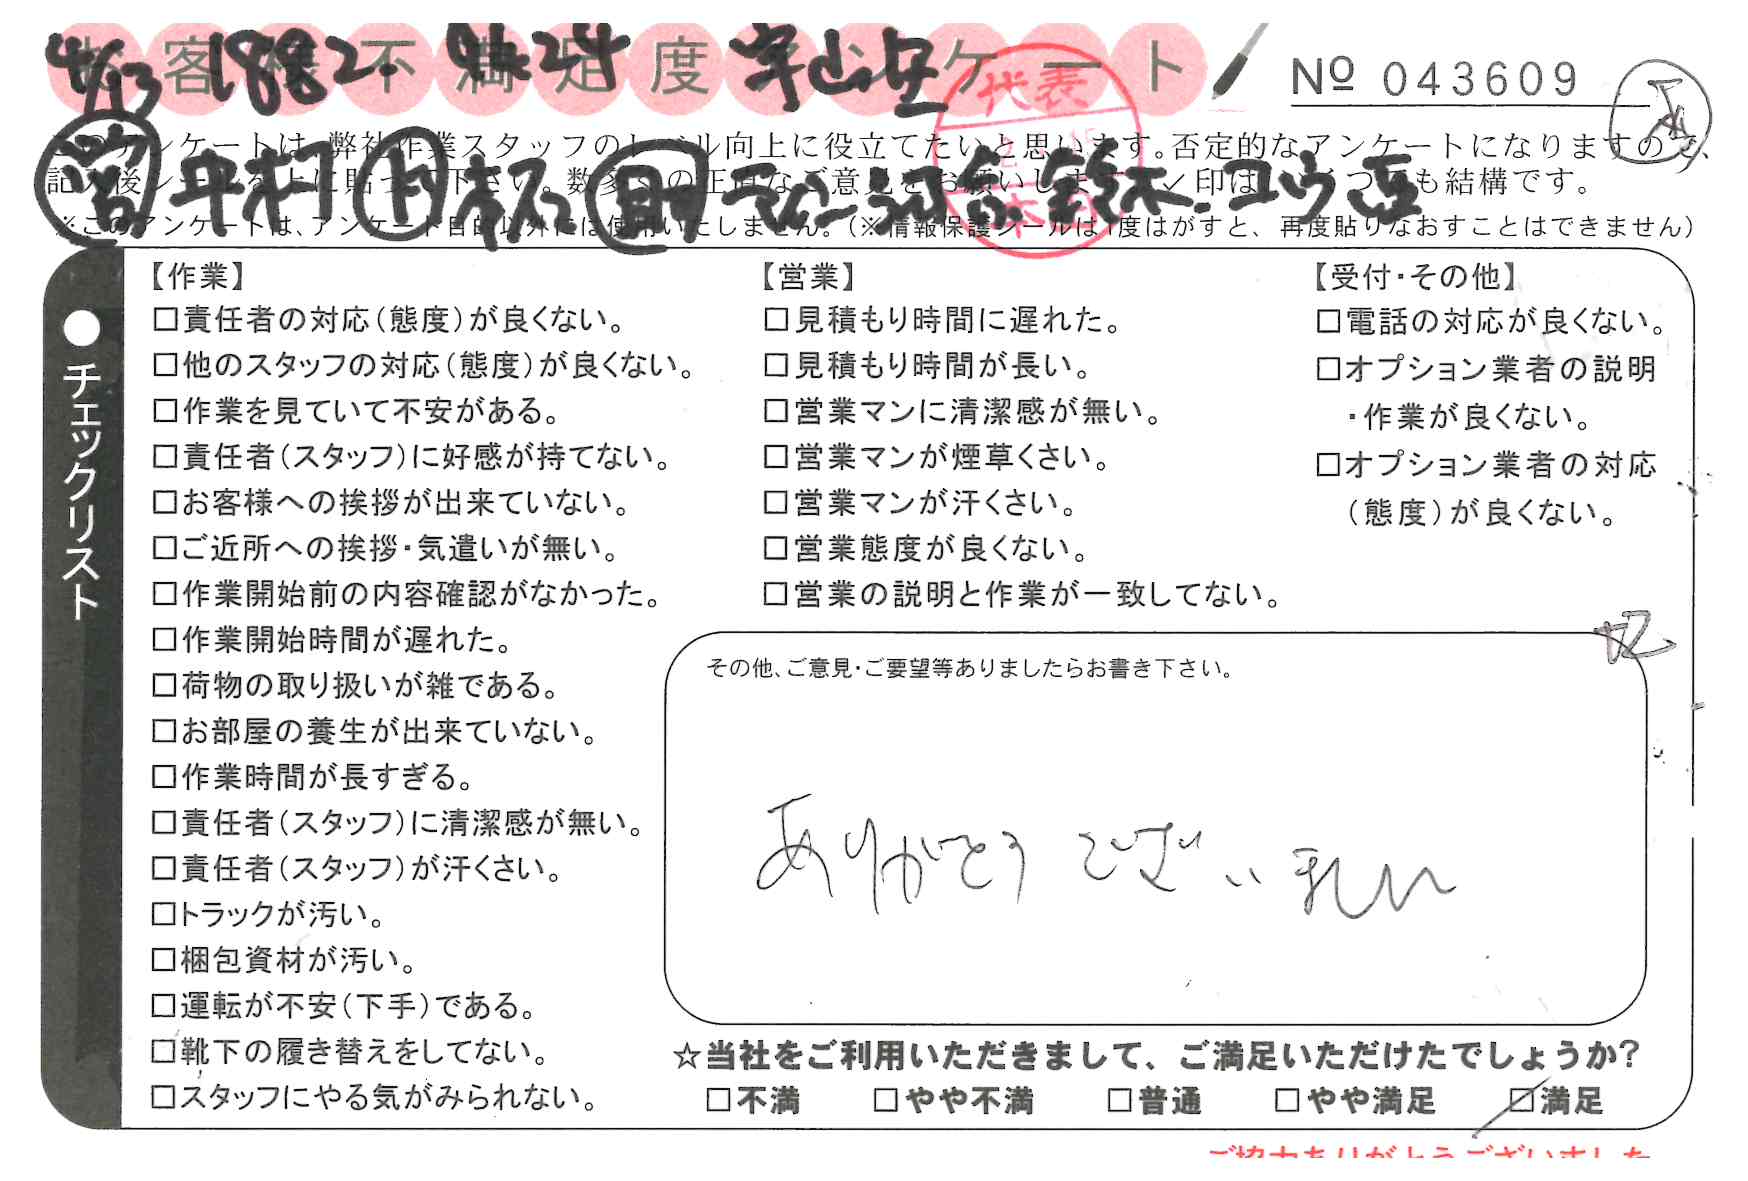 お客様不満足度アンケート
4/13 1882.
№ 043609
このアンケートは、弊社作業スタッフのレベル向上に役立てたいと思います。否定的なアンケートになりますので、
記入後シールを上に貼って下さい。数多くの正直なご意見をお願いします。✓印はいくつでも結構です。
営 平村 ト 助 鈴木.
※このアンケートは、アンケート目的以外には使用いたしません。(※情報保護シールは1度はがすと、再度貼りなおすことはできません)
代表
●チェックリスト
【作業】
□責任者の対応(態度)が良くない。
□他のスタッフの対応(態度)が良くない。
□作業を見ていて不安がある。
□責任者(スタッフ)に好感が持てない。
□お客様への挨拶が出来ていない。
□ご近所への挨拶・気遣いが無い。
□作業開始前の内容確認がなかった。
□作業開始時間が遅れた。
□荷物の取り扱いが雑である。
□お部屋の養生が出来ていない。
□作業時間が長すぎる。
□責任者(スタッフ)に清潔感が無い。
□責任者(スタッフ)が汗くさい。
□トラックが汚い。
□梱包資材が汚い。
□運転が不安(下手)である。
□靴下の履き替えをしてない。
□スタッフにやる気がみられない。
【営業】
□見積もり時間に遅れた。
□見積もり時間が長い。
□営業マンに清潔感が無い。
□営業マンが煙草くさい。
□営業マンが汗くさい。
□営業態度が良くない。
□営業の説明と作業が一致してない。
【受付・その他】
□電話の対応が良くない。
□オプション業者の説明
・作業が良くない。
□オプション業者の対応
(態度)が良くない。
その他、ご意見・ご要望等ありましたらお書き下さい。
ありがとうございました
☆当社をご利用いただきまして、ご満足いただけたでしょうか?
□不満 □やや不満 □普通 □やや満足 □満足
ご協力ありがとうございました